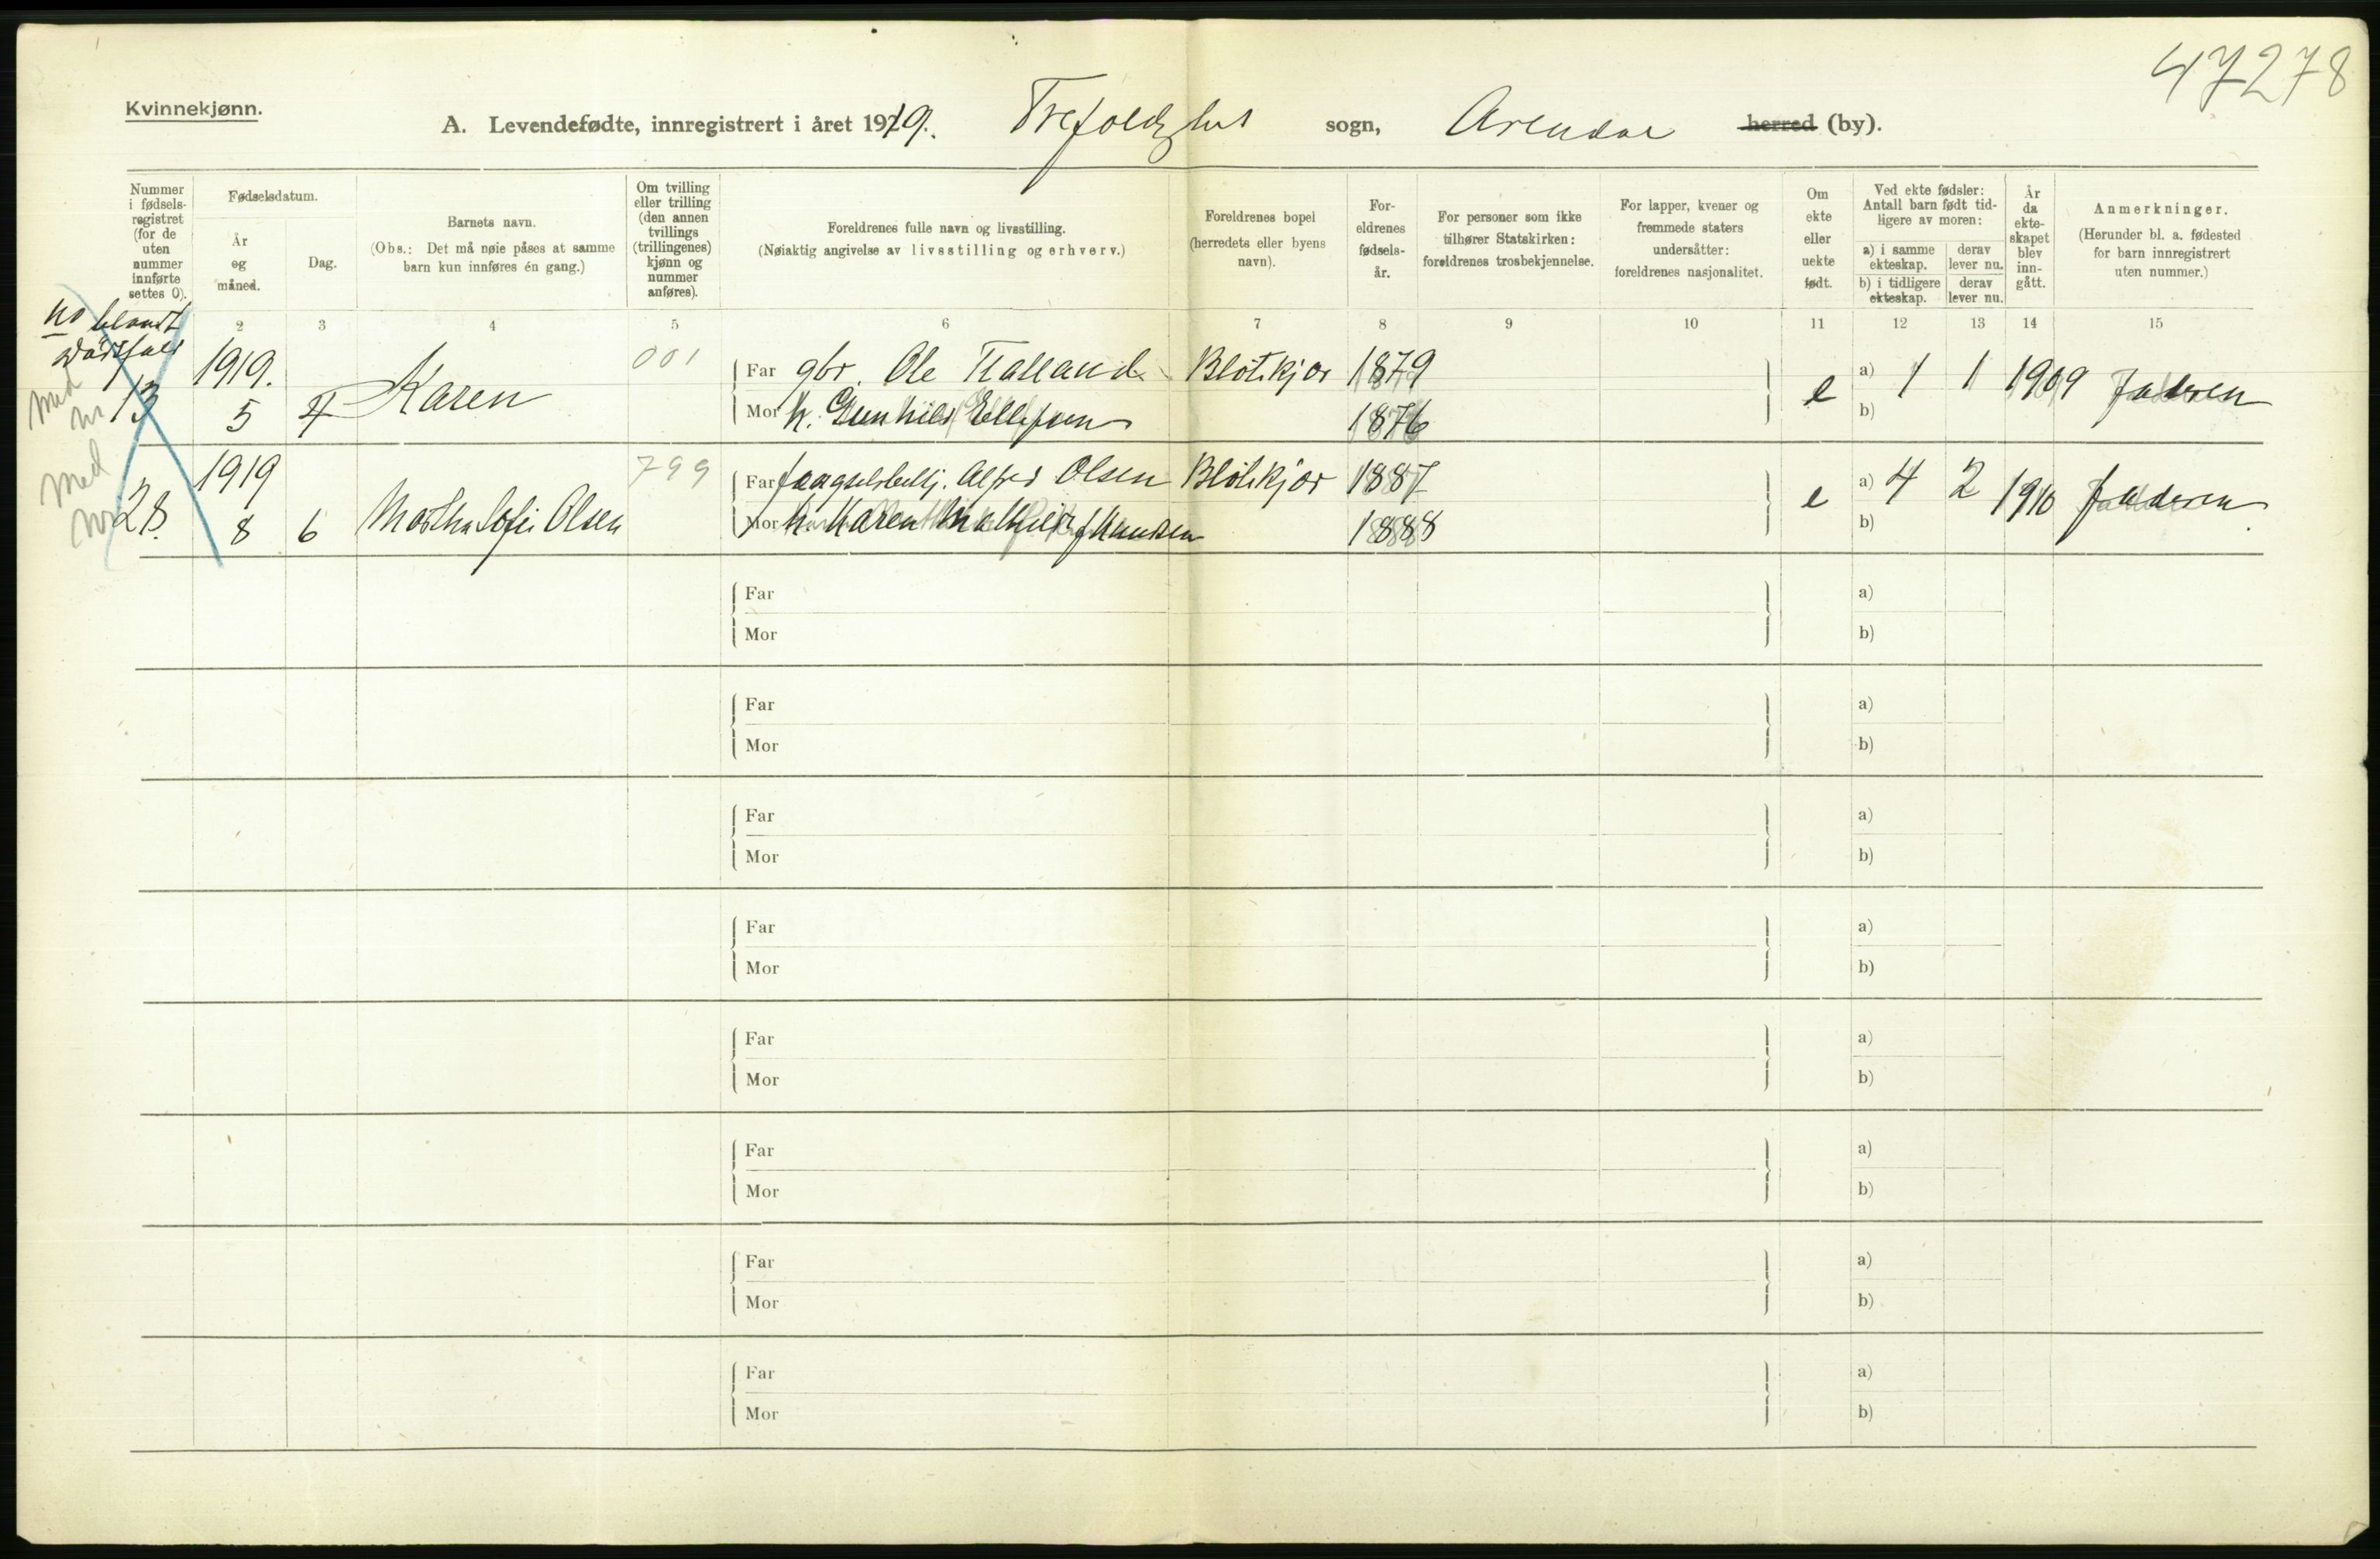 47278
Kvinnekjønn.
A. Levendefødte, innregistrert i året 1919. Trefoldighet sogn, Arendal herred (by).
Nummer i fødselsregistret (for de uten nummer innførte settes 0).
Fødselsdatum.
År og måned.
Dag.
Barnets navn.
(Obs.: Det må nøie påses at samme barn kun innføres én gang.)
Om tvilling eller trilling (den annen tvillings (trillingenes) kjønn og nummer anføres).
Foreldrenes fulle navn og livsstilling.
(Nøiaktig angivelse av livsstilling og erhverv.)
Foreldrenes bopel (herredets eller byens navn).
Foreldrenes fødselsår.
For personer som ikke tilhører Statskirken: foreldrenes trosbekjennelse.
For lapper, kvener og fremmede staters undersåtter: foreldrenes nasjonalitet.
Om ekte eller uekte født.
Ved ekte fødsler: Antall barn født tidligere av moren:
a) i samme ekteskap.
derav lever nu.
b) i tidligere ekteskap.
derav lever nu.
År da ekteskapet blev inngått.
Anmerkninger.
(Herunder bl. a. fødested for barn innregistrert uten nummer.)
2 3 4 5 6 7 8 9 10 11 12 13 14 15
no blandt
dødsfald
Med nr
13 1919. Karen 001 Far gbr. Ole Halland Blötekjær 1879 e a) 1 1 1909
5 Mor h. Gunhild Ellefsen 1876 b)
Med nr
28. 1919 Martha Sofie Olsen 799 Far Alfred Olsen Blötekjær 1887 e a) 4 2 1910
8 6 Mor h. Karen Knudsen 1888 b)
Far a)
Mor b)
Far a)
Mor b)
Far a)
Mor b)
Far a)
Mor b)
Far a)
Mor b)
Far a)
Mor b)
Far a)
Mor b)
Far a)
Mor b)